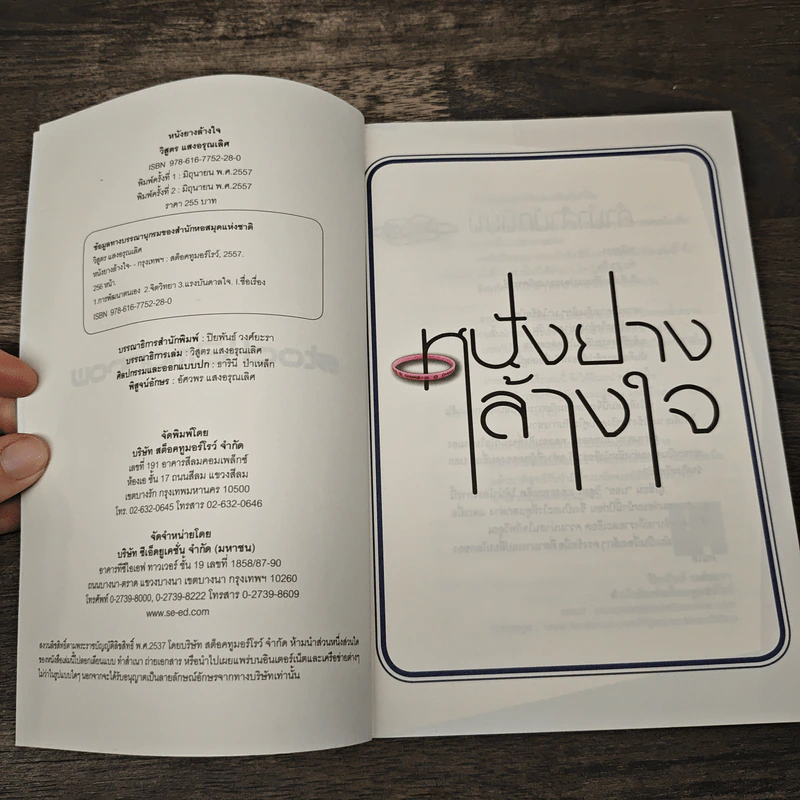 หนังยางล้างใจ
วิสูตร แสงอรุณเลิศ
ISBN 978-616-7752-28-0
พิมพ์ครั้งที่ 1 : มิถุนายน พ.ศ.2557
พิมพ์ครั้งที่ 2 : มิถุนายน พ.ศ.2557
ราคา 255 บาท
ข้อมูลทางบรรณานุกรมของสำนักหอสมุดแห่งชาติ
วิสูตร แสงอรุณเลิศ
หนังยางล้างใจ- - กรุงเทพฯ : สต็อคทูมอร์โรว์, 2557.
256 หน้า.
1.การพัฒนาตนเอง 2.จิตวิทยา 3.แรงบันดาลใจ. I.ชื่อเรื่อง
ISBN 978-616-7752-28-0
บรรณาธิการสำนักพิมพ์ : ปิยพันธ์ วงศ์ยะรา
บรรณาธิการเล่ม : วิสูตร แสงอรุณเลิศ
ศิลปกรรมและออกแบบปก : ธาริณี ป่าเหล็ก
พิสูจน์อักษร : อัศวพร แสงอรุณเลิศ
จัดพิมพ์โดย
บริษัท สต็อคทูมอร์โรว์ จำกัด
เลขที่ 191 อาคารสีลมคอมเพล็กซ์
ห้องเอ ชั้น 17 ถนนสีลม แขวงสีลม
เขตบางรัก กรุงเทพมหานคร 10500
โทร. 02-632-0645 โทรสาร 02-632-0646
จัดจำหน่ายโดย
บริษัท ซีเอ็ดยูเคชั่น จำกัด (มหาชน)
อาคารทีซีไอเอฟ ทาวเวอร์ ชั้น 19 เลขที่ 1858/87-90
ถนนบางนา-ตราด แขวงบางนา เขตบางนา กรุงเทพฯ 10260
โทรศัพท์ 0-2739-8000, 0-2739-8222 โทรสาร 0-2739-8609
www.se-ed.com
สงวนลิขสิทธิ์ตามพระราชบัญญัติลิขสิทธิ์ พ.ศ.2537 โดยบริษัท สต็อคทูมอร์โรว์ จำกัด ห้ามนำส่วนหนึ่งส่วนใด
ของหนังสือเล่มนี้ไปลอกเลียนแบบ ทำสำเนา ถ่ายเอกสาร หรือนำไปเผยแพร่บนอินเตอร์เน็ตและเครือข่ายต่างๆ
ไม่ว่าในรูปแบบใดๆ นอกจากจะได้รับอนุญาตเป็นลายลักษณ์อักษรจากทางบริษัทเท่านั้น
หนังยาง
ล้างใจ